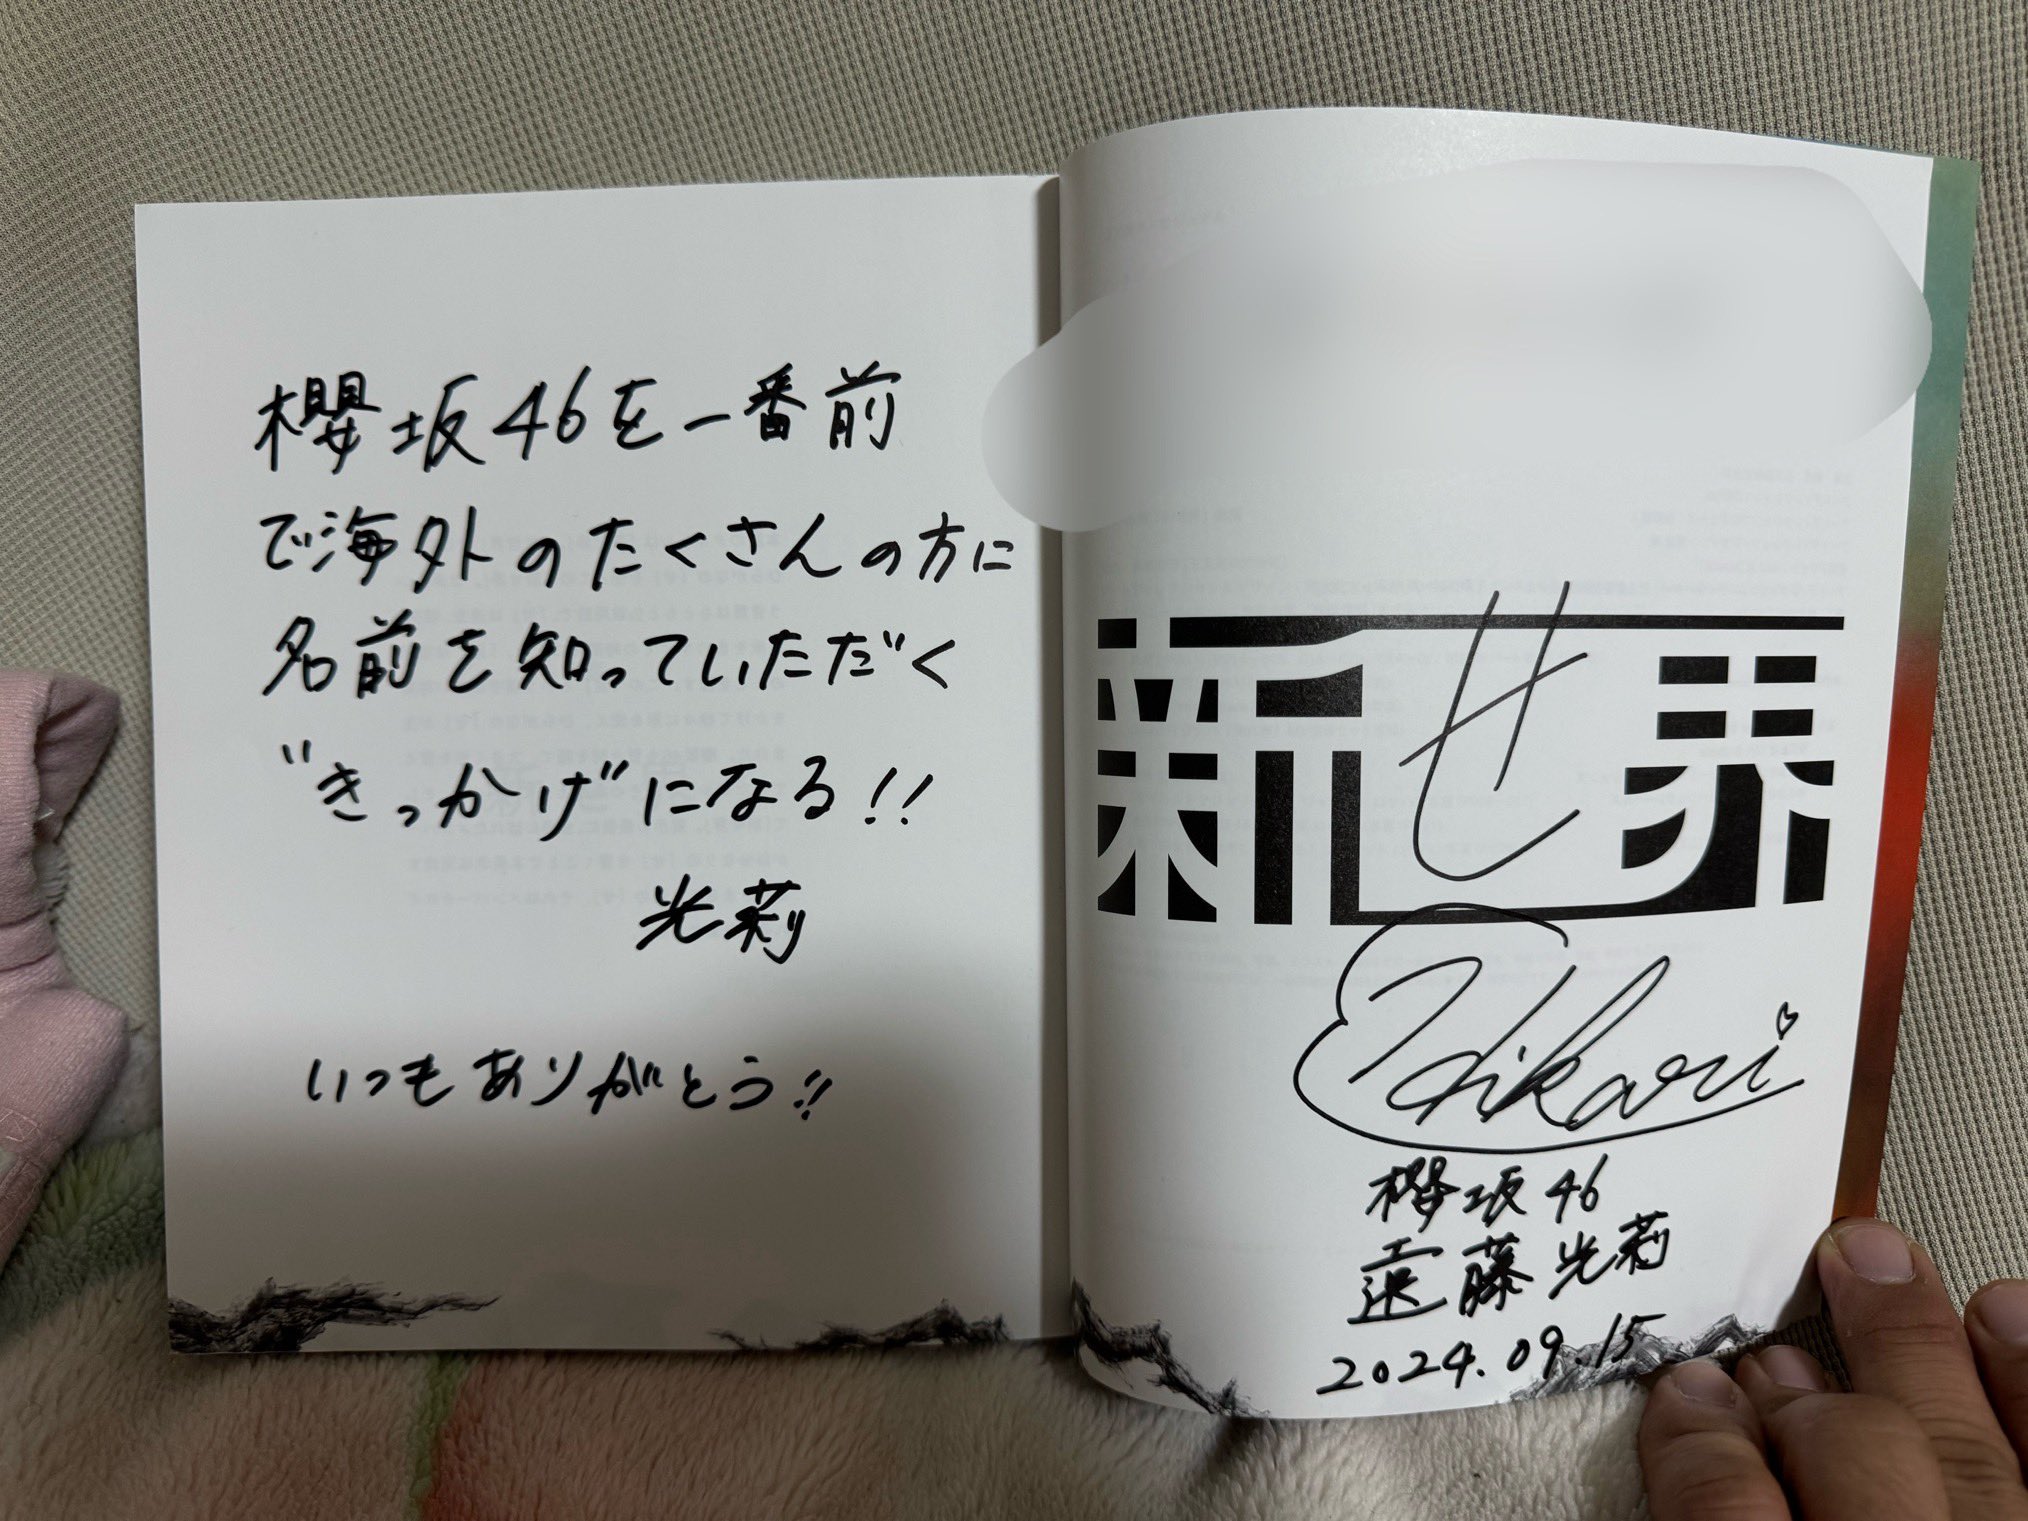 櫻坂46を一番前
で海外のたくさんの方に
名前を知っていただく
"きっかけ"になる!!
光莉
いつもありがとう!!
新せ界
Hikari
櫻坂46
遠藤光莉
2024.09.15